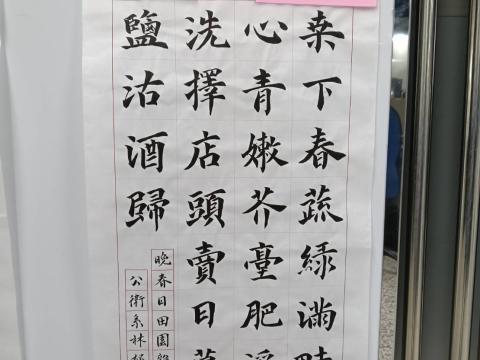 桒下春蔬綠滿畦
心青嫩芥臺肥溪
洗擇店頭賣日暮
鹽沽酒歸
晚春日田園雜
公衛系林